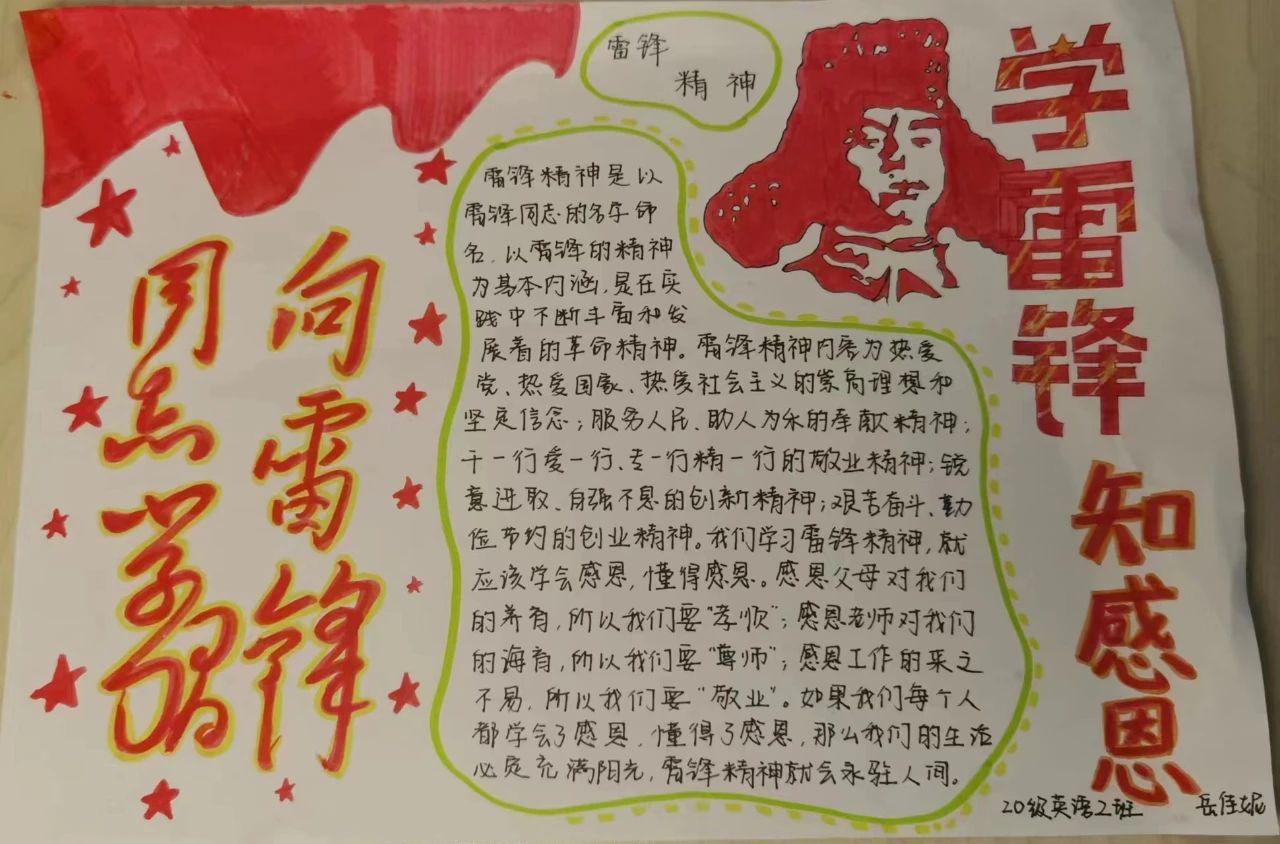 向雷锋
同志学习
雷锋
精神
雷锋精神是以
雷锋同志的名字命
名，以雷锋的精神
为基本内涵，是在实
践中不断丰富和发
展着的革命精神。雷锋精神内容为热爱
党、热爱国家、热爱社会主义的崇高理想和
坚定信念；服务人民、助人为乐的奉献精神；
干一行爱一行、专一行精一行的敬业精神；锐
意进取、自强不息的创新精神；艰苦奋斗、勤
俭节约的创业精神。我们学习雷锋精神，就
应该学会感恩，懂得感恩。感恩父母对我们
的养育，所以我们要“孝顺”；感恩老师对我们
的诲育，所以我们要“尊师”；感恩工作的来之
不易，所以我们要“敬业”。如果我们每个人
都学会了感恩，懂得了感恩，那么我们的生活
必定充满阳光，雷锋精神就会永驻人间。
学雷锋
知感恩
20级英语2班 岳佳妮